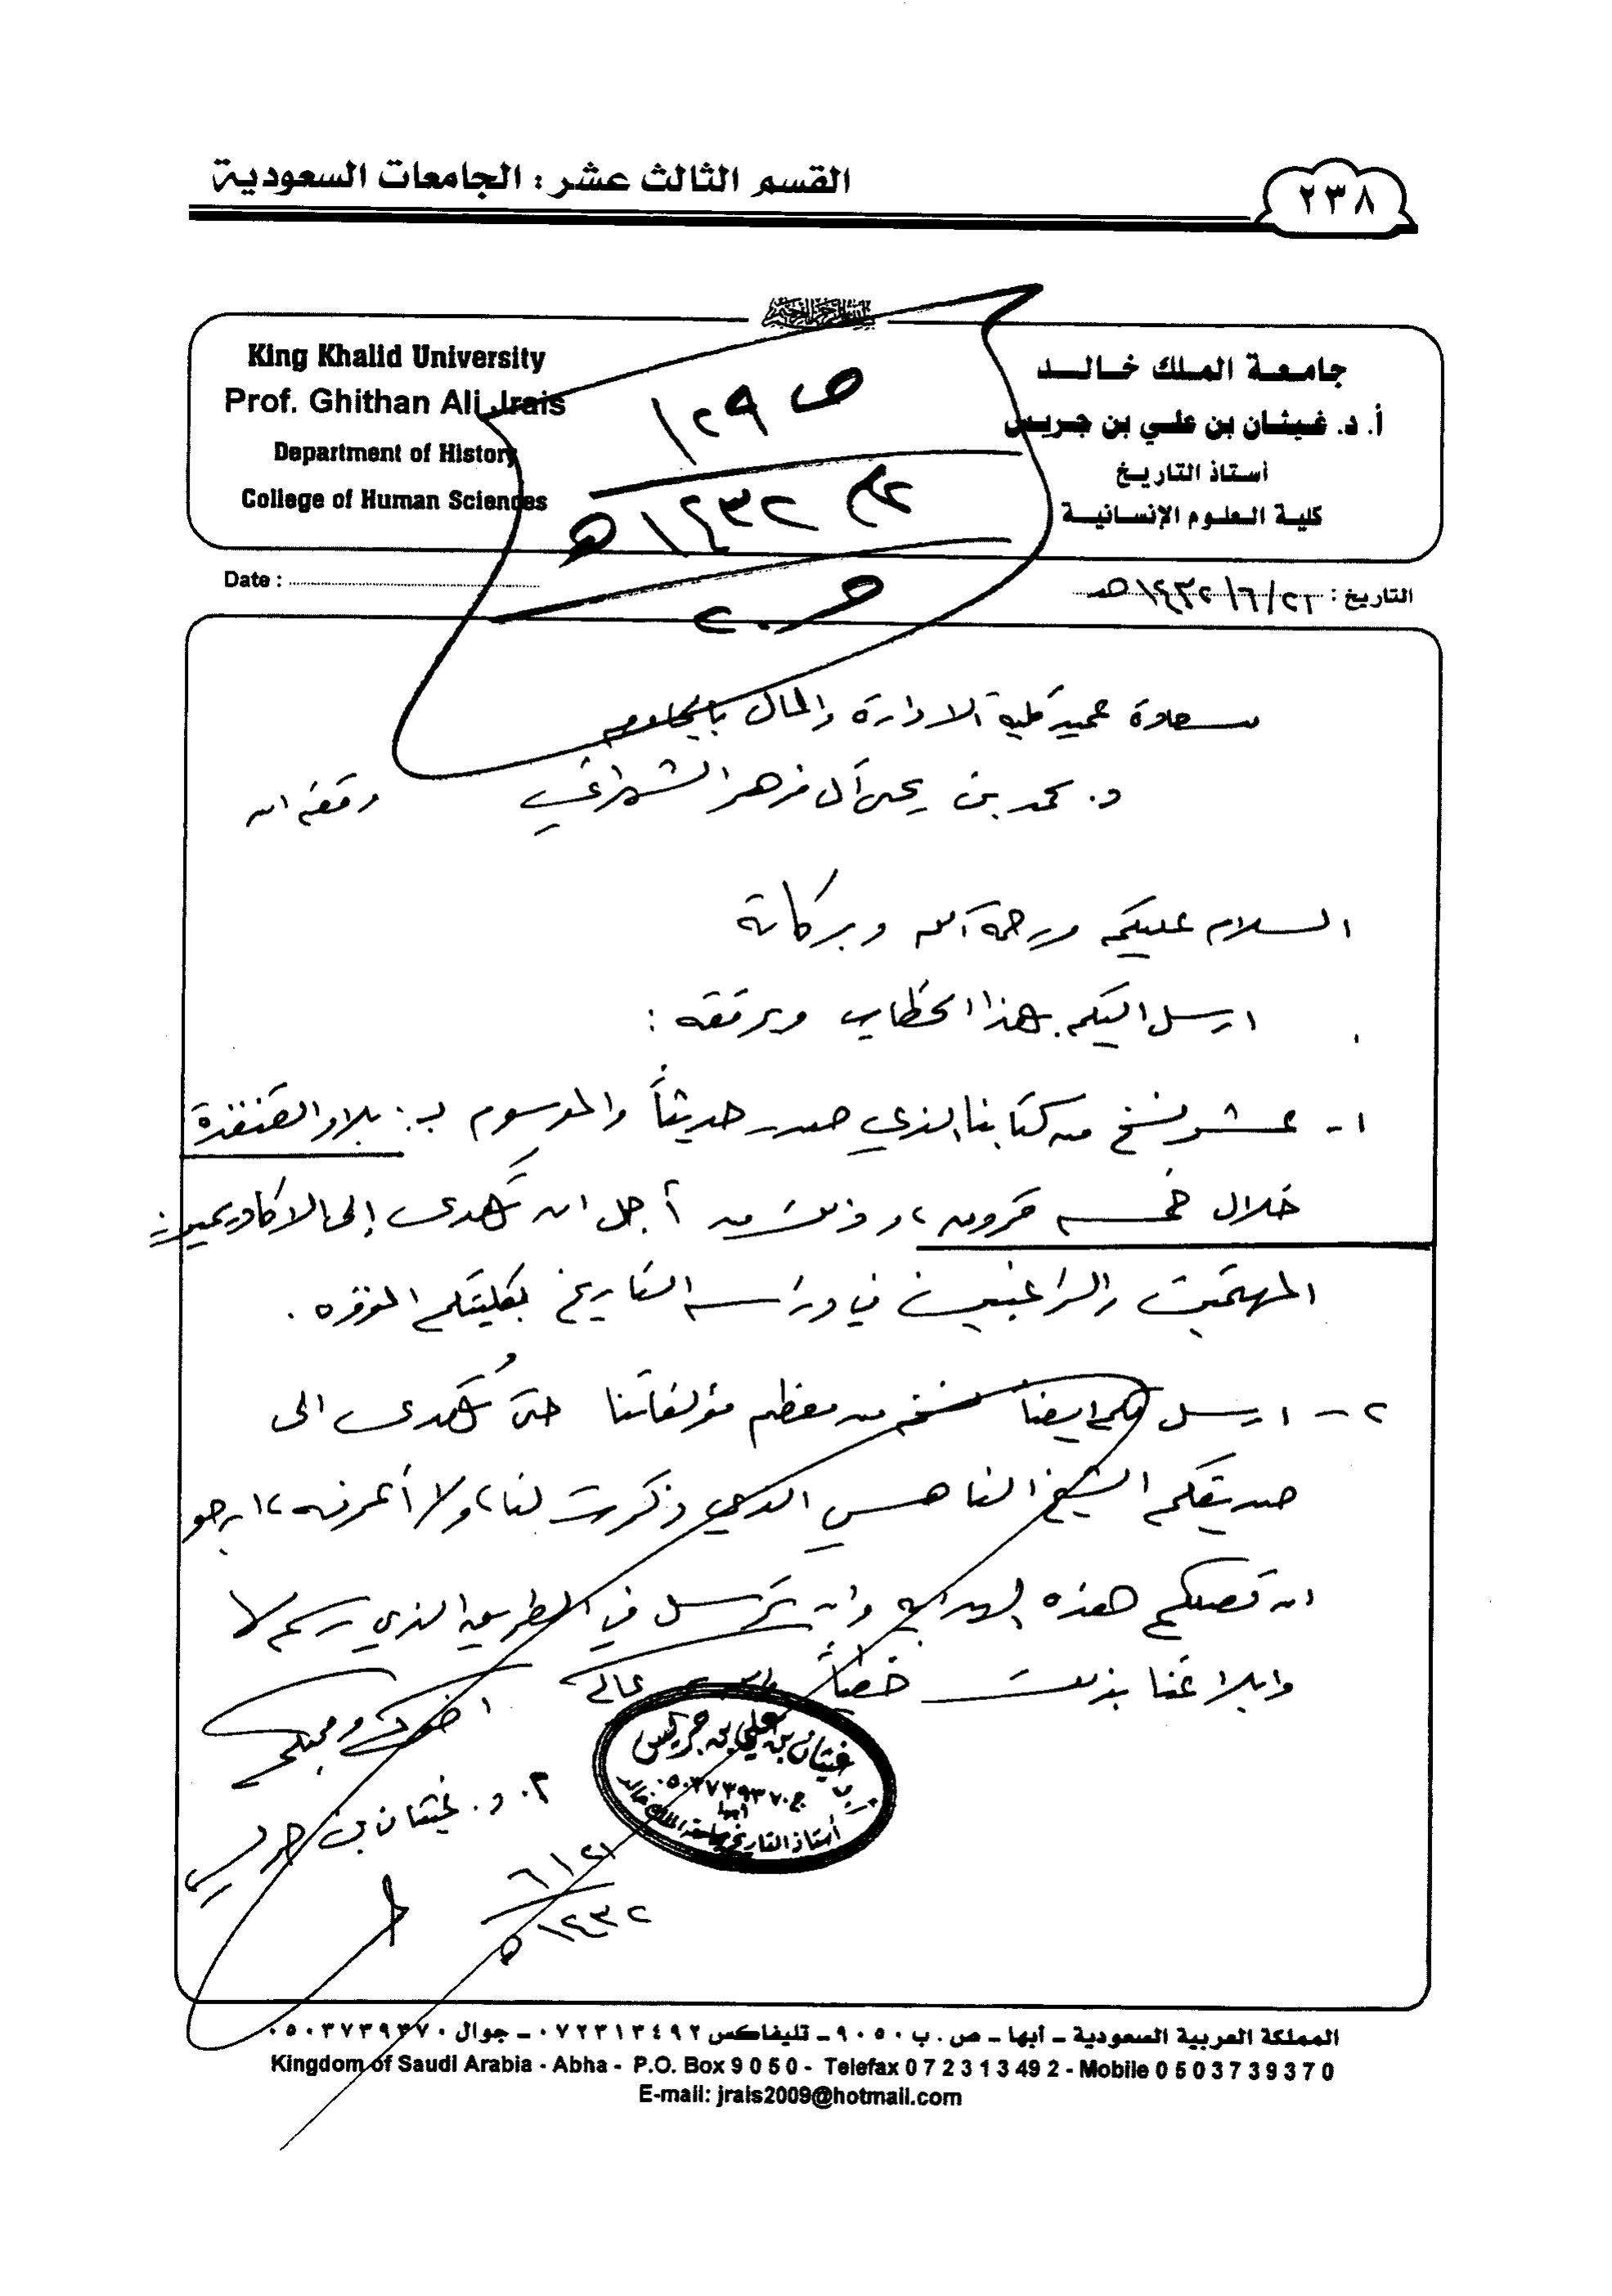 القسم الثالث عشر : الجامعات السعودية
٢٣٨
King Khalid University
Prof. Ghithan Ali Jrais
Department of History
College of Human Sciences
Date :
جامعة الملك خالد
أ. د. غيثان بن علي بن جريس
أستاذ التاريخ
كلية العلوم الإنسانية
التاريخ : ٢١/٦/١٤٣٢هـ
ص ١٢٩
عام ١٤٣٢هـ
سعادة عميد كلية الادارة والمال
د. محمد بن يحيى آل مزهر الشهراني وفقه الله
السلام عليكم ورحمة الله وبركاته
ارسل اليكم هذا الخطاب وبرفقه :
١- عشر نسخ من كتابنا الذي صدر حديثاً والموسوم بـ : بلاد القنفذة
خلال خمسة قرون ، وذلك من أجل ان تُهدى إلى الاكاديميين
المهتمين والراغبين في دراسة التاريخ بكليتكم الموقره .
٢- ارسل لكم ايضاً نسخ من معظم مؤلفاتنا حتى تُهدى الى
صديقكم الشيخ الذي ذكرت لنا ، ولا أعرفه ، ارجو
ان تصلكم هذه الهدايا وان ترسل في الطريق الذي رسم لها
وابلاغنا بذلك خطياً
اخوكم ومحبكم
أ. د. غيثان بن جريس
٢١/٦
١٤٣٢هـ
غيثان بن علي بن جريس
ج ٠٥٠٣٧٣٩٣٧٠
أبها
أستاذ التاريخ بجامعة الملك خالد
المملكة العربية السعودية – أبها – ص . ب ٩٠٥٠ – تليفاكس ٠٧٢٣١٣٤٩٢ – جوال ٠٥٠٣٧٣٩٣٧٠
Kingdom of Saudi Arabia - Abha - P.O. Box 9 0 5 0 - Telefax 0 7 2 3 1 3 49 2 - Mobile 0 5 0 3 7 3 9 3 7 0
E-mail: jrais2009@hotmail.com